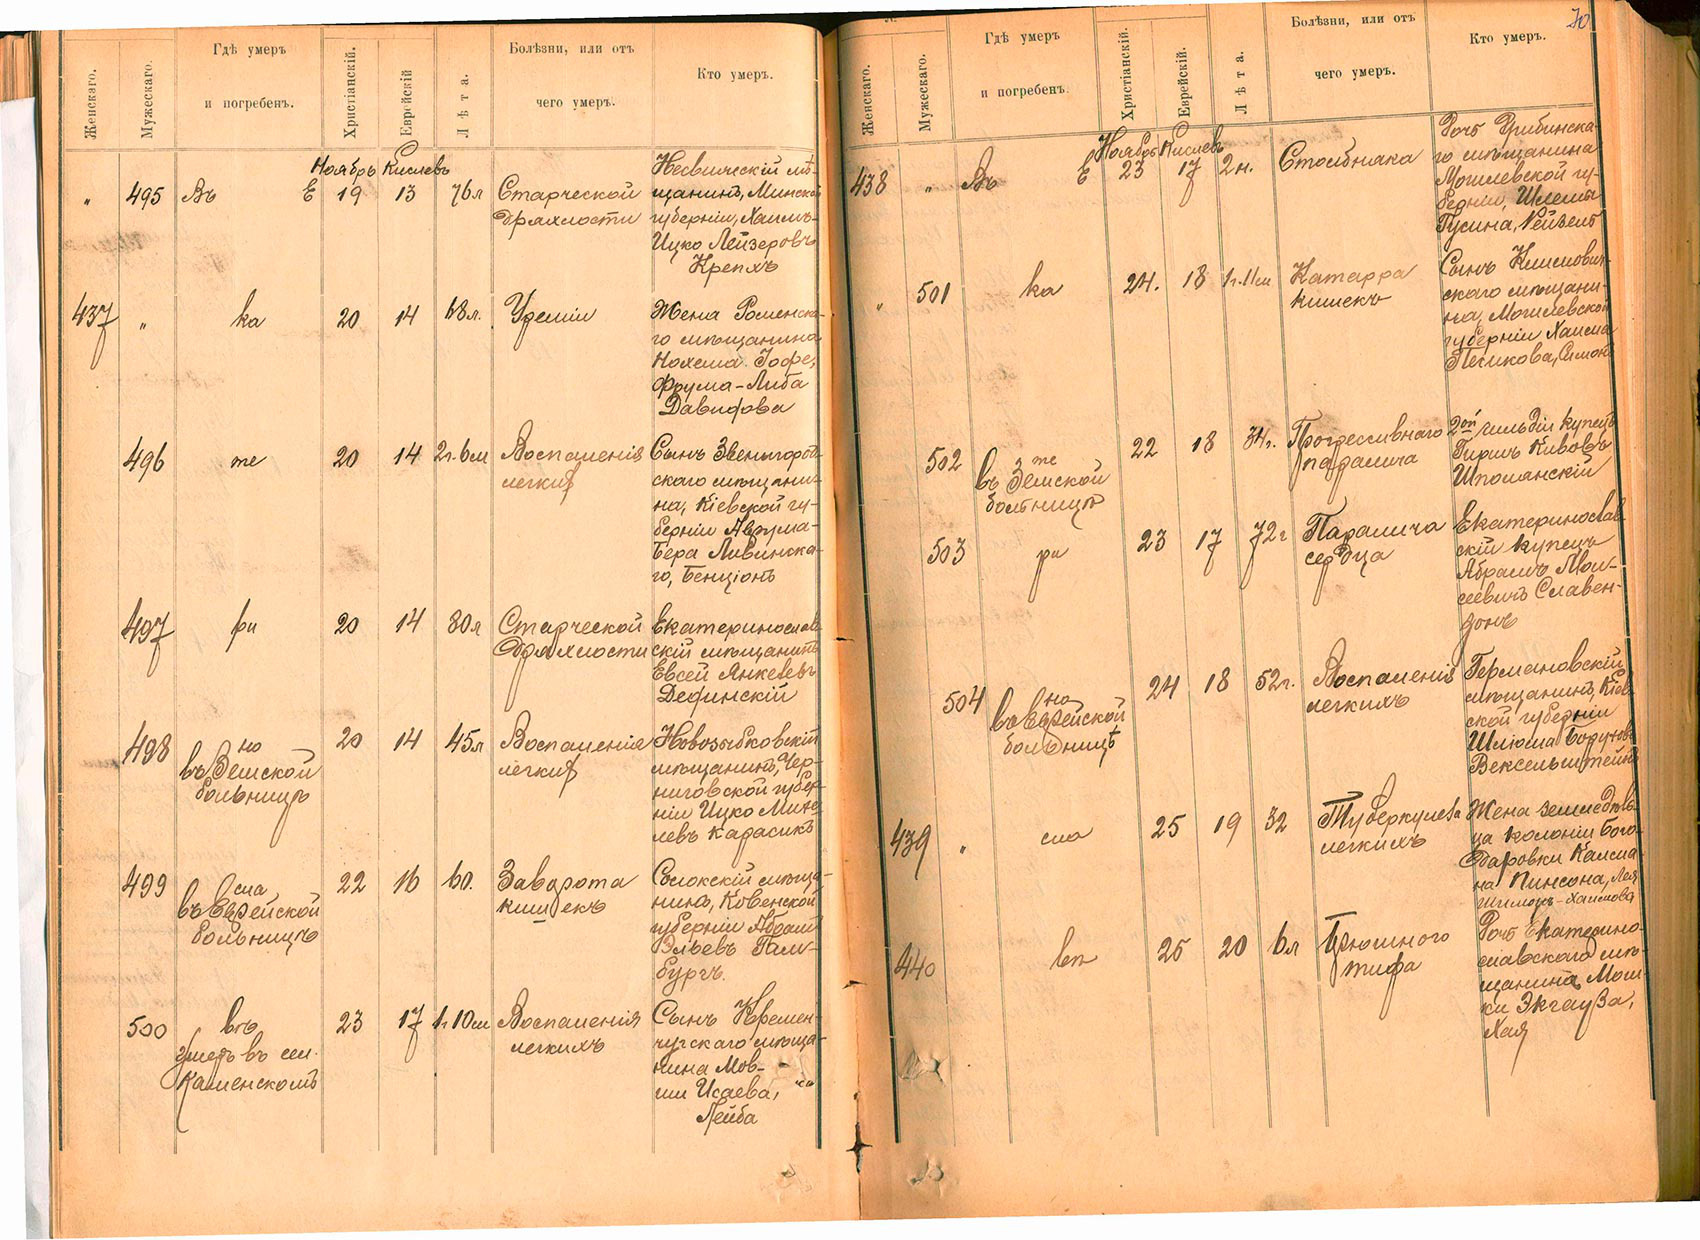 Женскаго.
Мужескаго.
Гдѣ умеръ
и погребенъ.
Христіанскій.
Еврейскій
Лѣта.
Болѣзни, или отъ
чего умеръ.
Кто умеръ.
Ноябрь Кислевъ
„ 495 Въ Е 19 13 76л
Старческой
дряхлости
Несвижскій мѣ-
щанинъ, Минской
губерніи, Хаимъ-
Ицко Лейзеровъ
Крепхъ
437 „ ка 20 14 48л.
Уреміи
Жена Роменска-
го мѣщанина
Нохема Іофе,
Фрума-Либа
Давидова
496 те 20 14 2г. 6м
Воспаленія
легких
Сынъ Звенигород-
скаго мѣщани-
на, Кіевской гу-
берніи Аврума-
Бера Ливинска-
го, Бенціонъ
497 ри 20 14 80л
Старческой
дряхлости
Екатеринослав-
скій мѣщанинъ
Евсей Янкелевъ
Дединскій
498 но
въ Земской
больницѣ
20 14 45л
Воспаленія
легких
Новозыбковскій
мѣщанинъ, Чер-
ниговской губер-
ніи Ицко
Карасикъ
499 сла
въ Еврейской
больницѣ
22 16 60.
Заворота
кишекъ
мѣща-
нинъ, Ковенской
губерніи Абрамъ
Эльевъ Гам-
бургъ.
500 въ
умеръ въ сел.
Каменскомъ
23 17 1г 10м
Воспаленія
легкихъ
Сынъ Кремен-
чугскаго мѣща-
нина Мов-
ши Исаева,
Лейба
70
Женскаго.
Мужескаго.
Гдѣ умеръ
и погребенъ.
Христіанскій.
Еврейскій.
Лѣта.
Болѣзни, или отъ
чего умеръ.
Кто умеръ.
Ноябрь Кислевъ
438 „ Въ Е 23 17 2н.
Столбняка
Дочь Грибинска-
го мѣщанина
Могилевской гу-
берніи, Шлемы
Гусина, Рейзель
„ 501 ка 24. 18 1г. 11м
Катарра
кишекъ
Сынъ Климович-
скаго мѣщани-
на, Могилевской
губерніи Хаима
Песикова, Симонъ
502 те
въ Земской
больницѣ
22 18 34г.
Прогрессивнаго
паралича
2ой гильдіи купецъ
Гиршъ Кивовъ
Шполянскій
503 ри 23 17 72г
Паралича
сердца
Екатеринослав-
скій купецъ
Абрамъ Мои-
сеевичъ Славен-
зонъ
504 но
въ Еврейской
больницѣ
24 18 52г.
Воспаленія
легкихъ
Германовскій
мѣщанинъ, Кіев-
ской губерніи
Шліома Боруховъ
Вексельштейнъ
439 „ сла 25 19 32
Туберкулеза
легкихъ
Жена земледѣль-
ца колоніи Бого-
даровки Калма-
на Пинсона, Лея
Шимонъ-Хаимова
440 въ 25 20 6л
Брюшного
тифа
Дочь Екатерино-
славскаго мѣ-
щанина, Мош-
ки Экгауза,
Хая